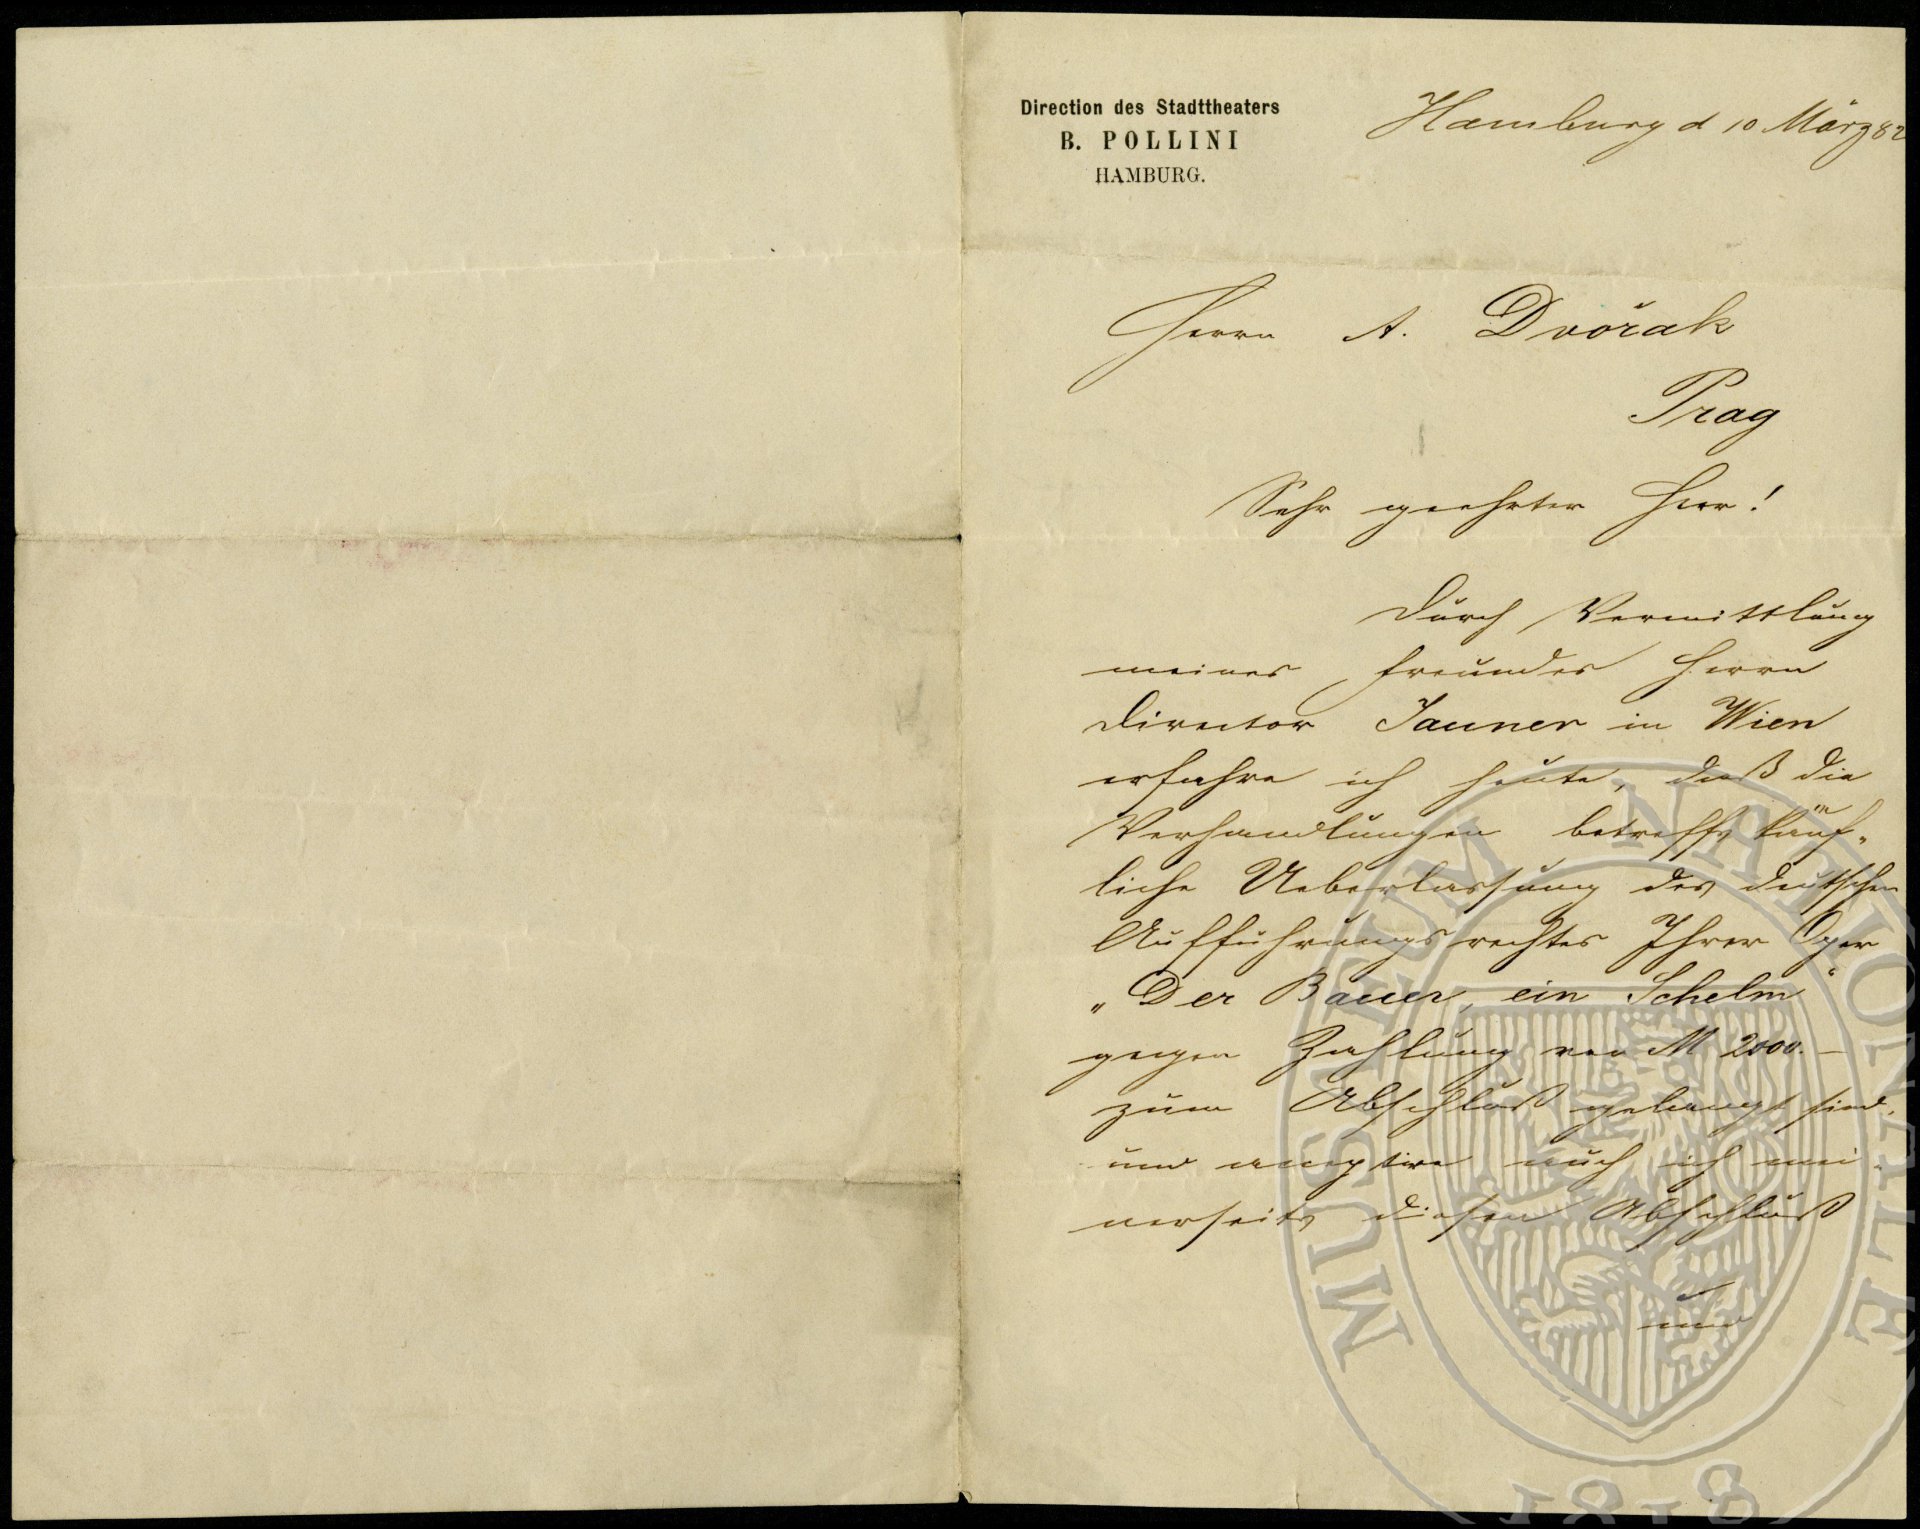 Direction des Stadttheaters
B. POLLINI
HAMBURG.
Hamburg d 10 März 82
Herrn A. Dvořák
Prag
Sehr geehrter Herr!
Durch Vermittlung
meines Freundes Herrn
Director Jauner in Wien
erfahre ich heute, daß die
Verhandlungen betreffs käuf„
liche Ueberlassung des deutschen
Aufführungsrechtes Ihrer Oper
„Der Bauer, ein Schelm“
gegen Zahlung von M 2000.—
zum Abschluß gelangt sind,
und acceptire auch ich mei„
nerseits diesen Abschluß
und
MUSEUM NATIONALE
1818